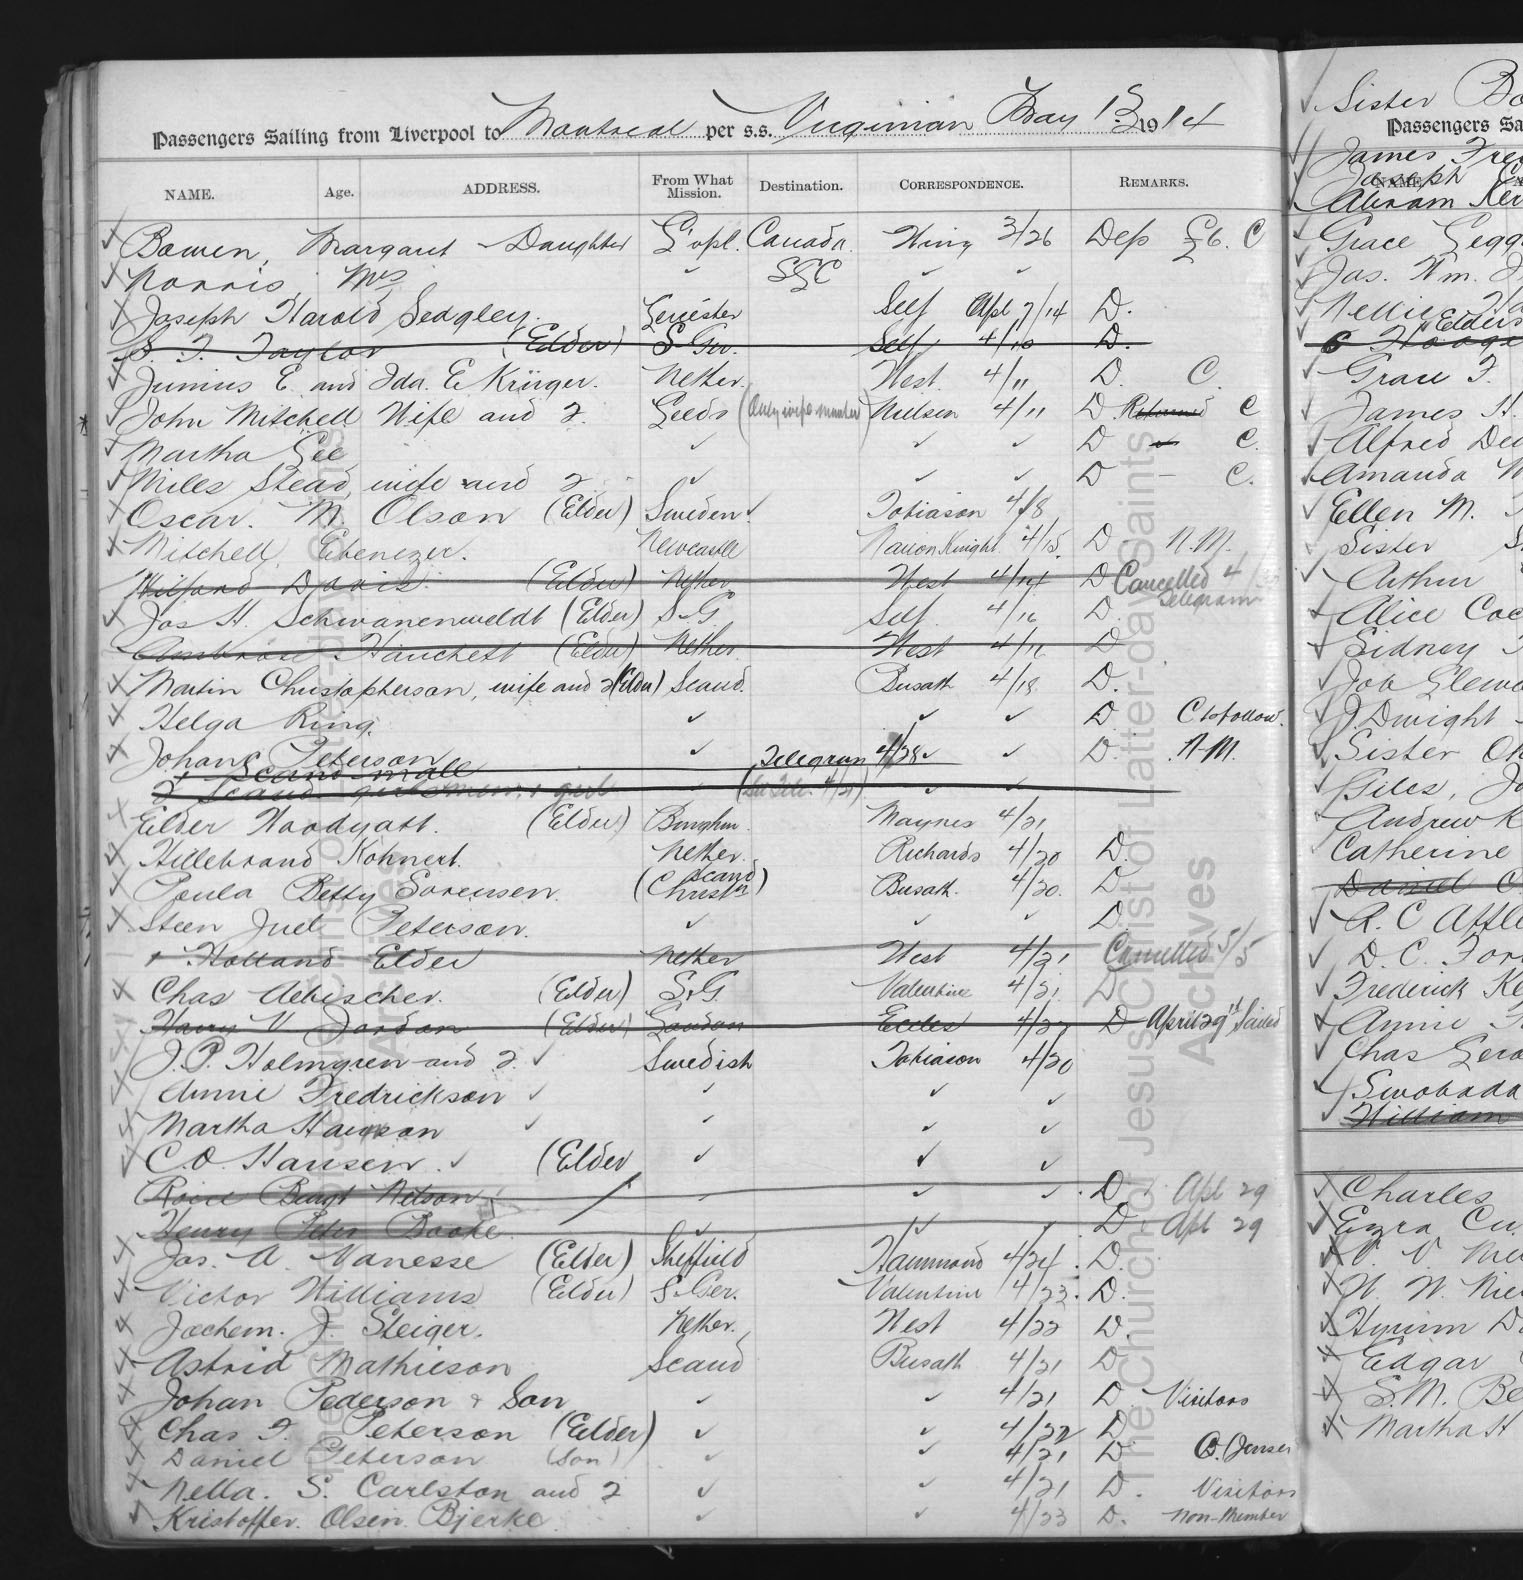 Passengers Sailing from Liverpool to Montreal per s.s. Virginian May 15 1914
NAME. Age. ADDRESS. From What Mission. Destination. CORRESPONDENCE. REMARKS.
Bowen, Margaret - Daughter L'vpl. Canada. 3/26 Dep £6. C
Norris, Mrs ✓ SLC ✓ ✓
Joseph Harold Sedgley. Leicester Self Apl 7/14 D.
S. T. Taylor (Elder) S Ger. Self 4/10 D.
Junius E. and Ida. E. Krüger. Nether. West. 4/11 D. C.
John Mitchell Wife and 2. Leeds (Only wife member) Nielsen 4/11 D. Returned C
Martha Gee ✓ ✓ ✓ D ✓ C.
Miles Stead, wife and 2 ✓ ✓ ✓ D - C.
Oscar. M. Olson (Elder) Sweden. Tobiason 4/8
Mitchell, Ebenezer. Newcastle Knight. 4/15. D N.M.
Wilford Davis (Elder) Nether West 4/14 D Cancelled 4/
Telegram
Jas H. Schwaneweldt (Elder) S-G. Self. 4/16 D.
Ambrose Hanchett (Elder) Nether. West 4/11 D
Martin Christopherson, wife and 2 (Elder) Scand. Busath 4/18 D.
Helga Ring. ✓ ✓ ✓ D C to follow.
Johane Peterson ✓ ✓ ✓ D. N.M.
1 Scand male Telegram 4/28
2 Scand. girl (See Tele. 4/21) ✓ ✓
Elder Woodyatt. (Elder) Bmghm. Maynes 4/21
Hillebrand Köhnert. Nether. Richards 4/20 D.
Paula Betty Sorensen. (Scand Christn) Busath. 4/20. D
Steen Juel Peterson. ✓ ✓ ✓ D
1 Holland Elder Nether West 4/21 Cancelled 5/5
Chas Aebischer. (Elder) S.G. Valentine 4/21 D
Harry V. Jordan (Elder) London Eccles 4/22 D April 29th Sailed
J.P. Holmgren and 2. ✓ Swedish Tobiason 4/20
Annie Fredrickson ✓ ✓ ✓ ✓
Martha ✓ ✓ ✓ ✓
C.O. Hansen. ✓ (Elder ✓ ✓ ✓
Bengt Nelson ✓ ✓ ✓ D. Apl 29
Henry Peter ✓ ✓ ✓ D. Apl 29
Jas. A. Vanesse (Elder) Sheffield Hammond 4/24. D.
Victor Williams (Elder) S-Ger. Valentine 4/23. D.
Jochem. J. Steiger. Nether. West 4/22 D.
Astrid Mathieson Scand Busath 4/21 D.
Johan Pederson & Son ✓ ✓ 4/21 D. Visitors
Chas F. Peterson (Elder) ✓ ✓ 4/22 D
Daniel Peterson (Son) ✓ ✓ 4/21 D Jensen
Nella. S. Carlston and 2 ✓ ✓ 4/21 D. Visitors
Kristoffer. Olsen. Bjerke ✓ ✓ 4/23 D. Non-Member
Sister
Passengers Sa
James
NAME.
Joseph
Abram
Grace
Jas. Wm. J
Nellie
Elders
6
Grace F.
James H.
Alfred
Amanda
Ellen M.
Sister
Arthur
Alice
Sidney
Job
J. Dwight
Sister
Giles, Jo
Andrew K
Catherine
Daniel C.
A. C
D. C.
Frederick
Annie
Chas
Swoboda
William
Charles
Ezra
V. V.
W. W.
Hyrum
Edgar
S. M.
Martha H
The Church of Jesus Christ of Latter-day Saints
Archives